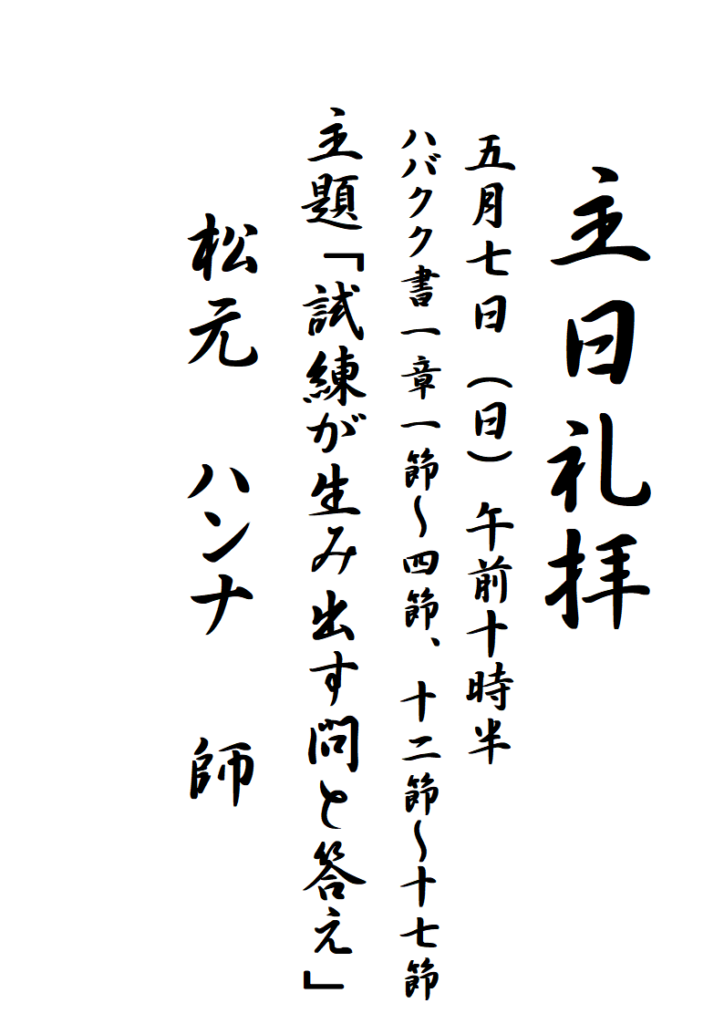 主日礼拝
五月七日（日）午前十時半
ハバクク書一章一節～四節、十二節～十七節
主題「試練が生み出す問と答え」
松元 ハンナ 師